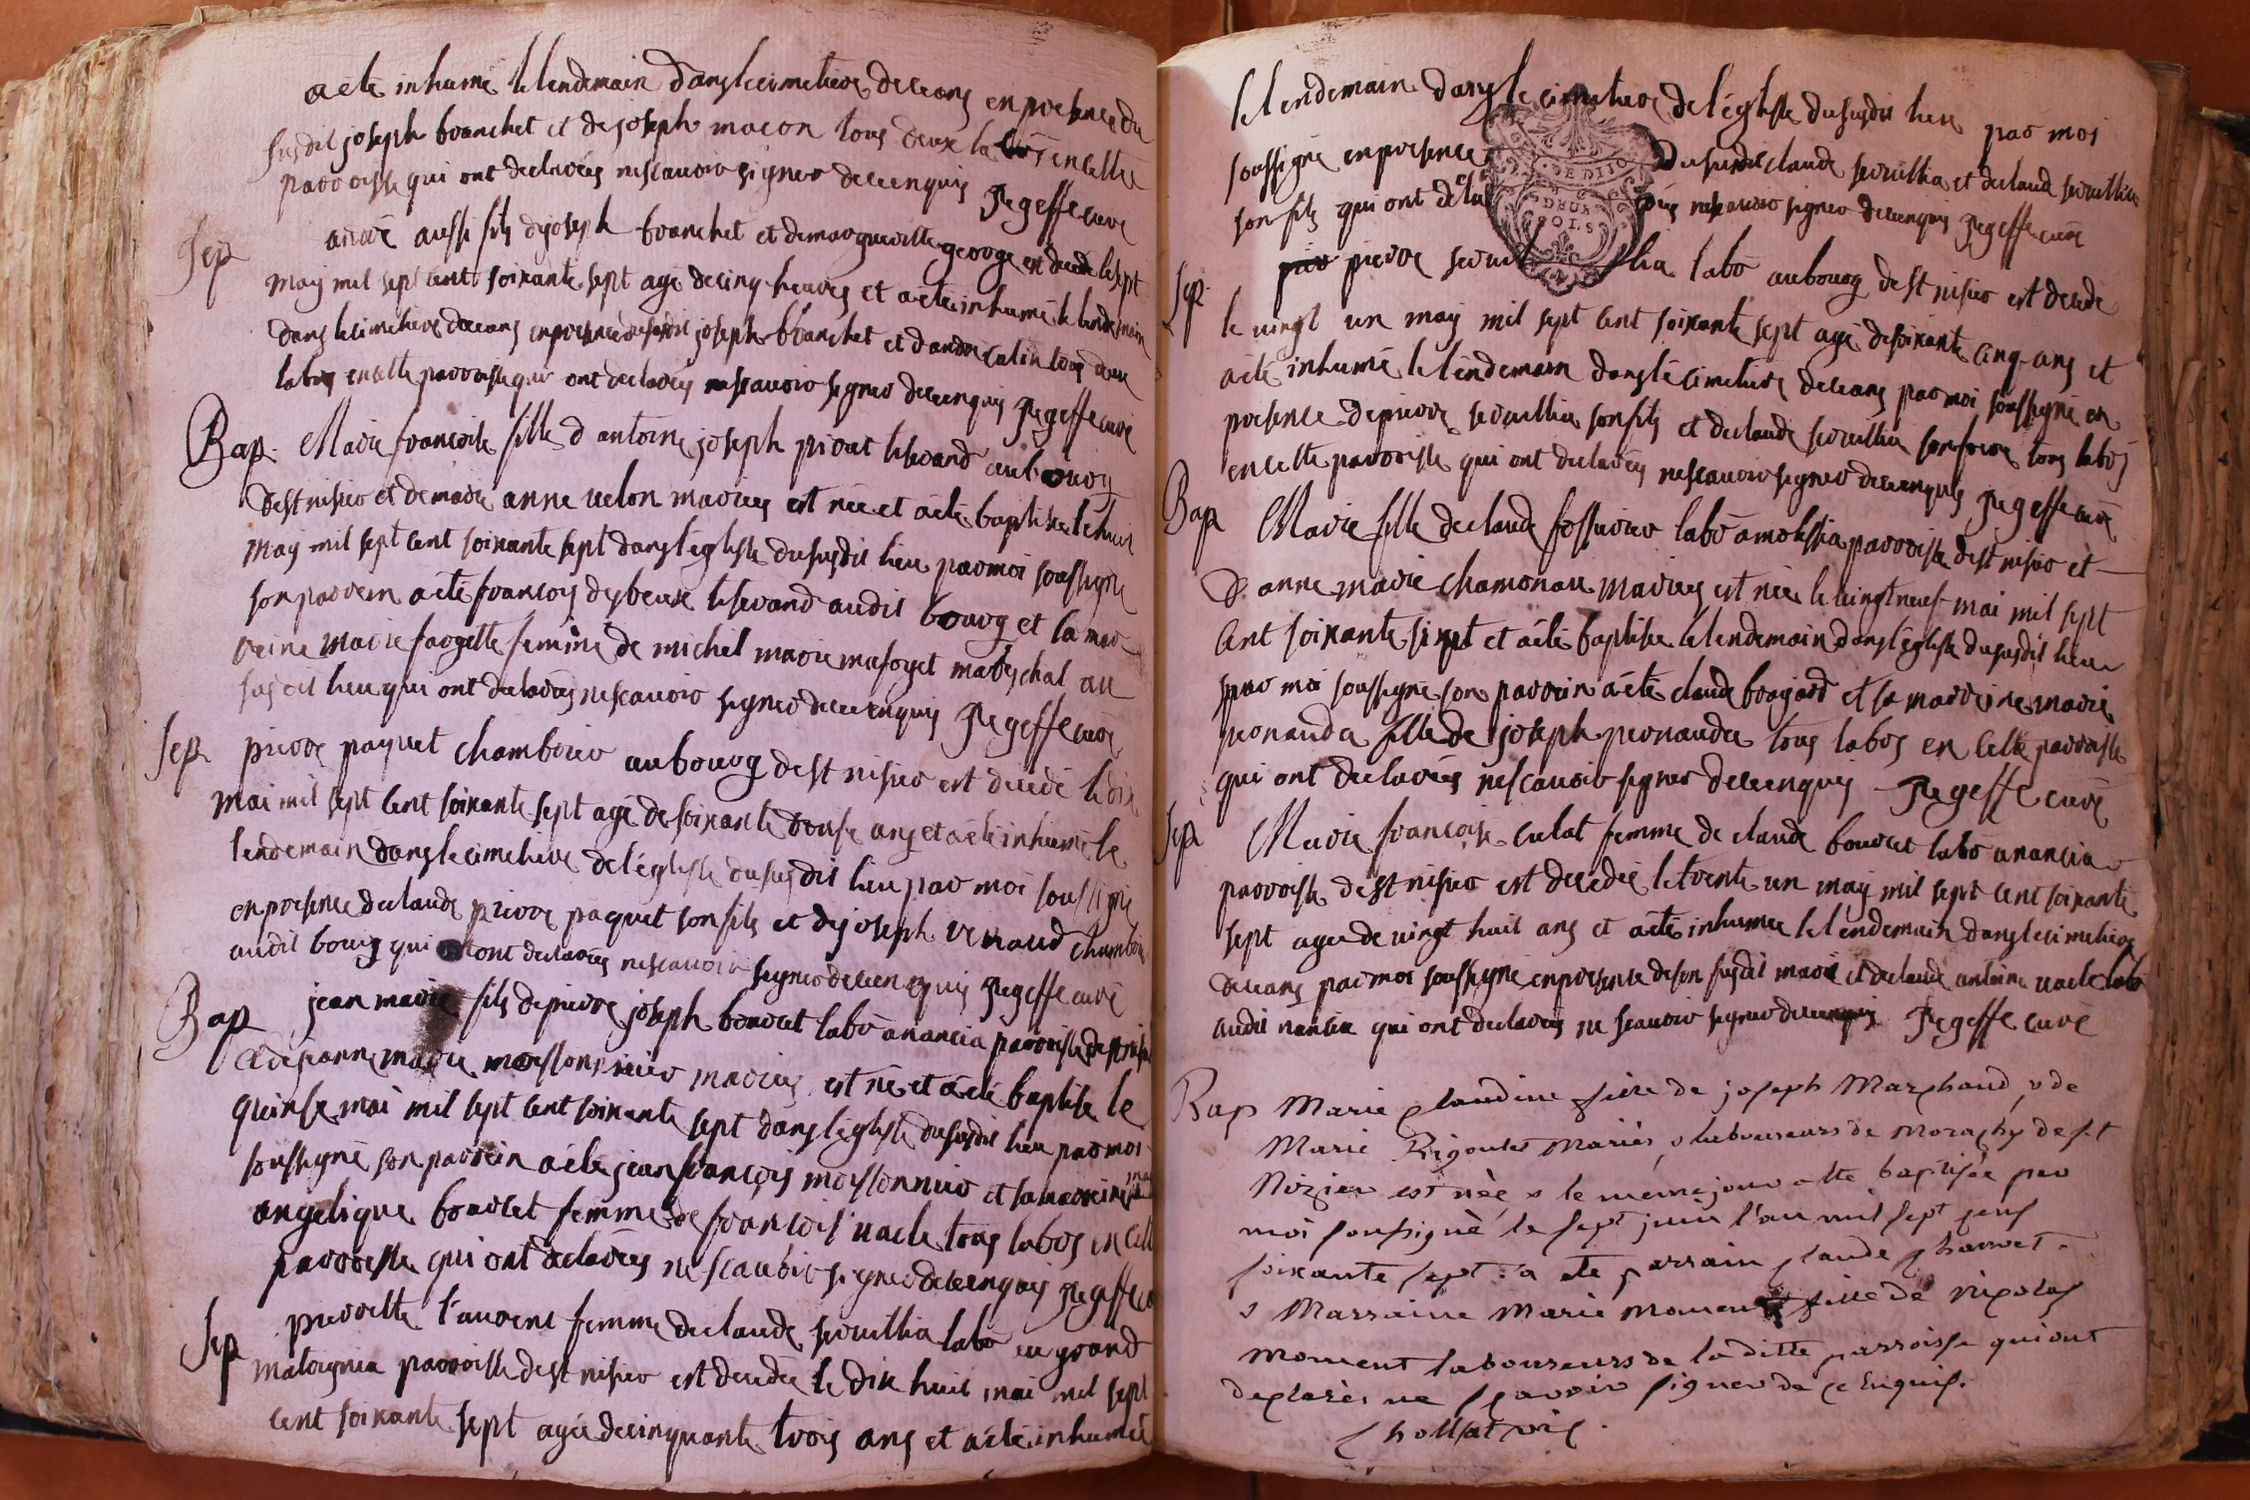 a été inhumé le lendemain dans le cimetiere de ceans en presence du
susdit joseph branchet et de joseph macon tous deux labrs en cette
parroisse qui ont declarés ne scavoir signer de ce enquis Jegeffe curé
Sep
andré aussi fils de joseph branchet et de margueritte george est decedé le sept
may mil sept cent soixante sept agé de cinq heures et a été inhumé le lendemain
dans le cimetiere de ceans en presence du susdit joseph branchet et d'andré catin tous deux
labrs en cette parroisse qui ont declarés ne scavoir signer de ce enquis Jegeffe curé
Bap. Marie francoise fille d antoine joseph privat tisserand au bourg
de st nisier et de marie anne velon mariés est née et a été baptisée le huit
may mil sept cent soixante sept dans l'église du susdit lieu par moi soussigné
son parrein a été francois desbeux tisserand audit bourg et la mar-
reine marie fargette femme de michel marie maréschal au
susdit lieu qui ont declarés ne scavoir signer de ce enquis Jegeffe curé
Sep pierre paquet chambrier au bourg de st nisier est decedé le dix
mai mil sept cent soixante sept agé de soixante douse ans et a été inhumé le
lendemain dans le cimetiere de l'église du susdit lieu par moi soussigné
en presence de claude pierre paquet son fils et de joseph renaud
audit bourg qui ont declarés ne scavoir signer de ce enquis Jegeffe curé
Bap jean marie fils de pierre joseph bourcet labr a nancia parroisse de st nisier
et de jeanne marie moissonnier mariés est né et a été baptisé le
quinse mai mil sept cent soixante sept dans l'église du susdit lieu par moi
soussigné son parrein a été jean françois moissonnier et sa marreine
angelique bourcet femme de francois uacle tous labrs en cette
parroisse qui ont declarés ne scavoir signer de ce enquis Jegeffe
Sep pierrette laurent femme de claude servillia labr au grand
parroisse de st nisier est decedée le dix huit mai mil sept
cent soixante sept agée de cinquante trois ans et a été inhumée
le lendemain dans le cimetiere de l'église du susdit lieu par moi
soussigné en presence du susdit claude servillia et de claude servillia
son fils qui ont ne scavoir signer de ce enquis Jegeffe curé
DEUX
SOLS
Sep. pierre servillia labr au bourg de st nisier est decedé
le vingt un may mil sept cent soixante sept agé de soixante cinq ans et
a été inhumé le lendemain dans le cimetiere de ceans par moi soussigné en
presence de pierre servillia son fils et de claude servillia son frere tous labrs
en cette parroisse qui ont declarés ne scavoir signer de ce enquis Jegeffe curé
Bap Marie fille de claude labr a parroisse de st nisier et
d'anne marie chamonau mariés est née le vingt neuf mai mil sept
cent soixante sept et a été baptisée le lendemain dans l'église du susdit lieu
par moi soussigné son parrein a été claude brogard et sa marreine marie
peonauda fille de joseph peonauda tous labrs en cette parroisse
qui ont declarés ne scavoir signer de ce enquis Jegeffe curé
Sep Marie francoise culat femme de claude bourcet labr a nancia
parroisse de st nisier est decedée le trente un may mil sept cent soixante
sept agée de vingt huit ans et a été inhumée le lendemain dans le cimetiere
de ceans par moi soussigné en presence de son susdit mari et de claude antoine uacle labr
audit nancia qui ont declarés ne scavoir signer de ce enquis Jegeffe curé
Bap Marie Claudine fille de joseph Marchand, & de
Marie Rigoulet Mariés, laboureurs de de st
Nizier est née & le meme jour a été baptisée par
moi soussigné le sept juin l'an mil sept cent
soixante sept : a été parrain Claude Charvet.
& Marraine Marie Moment fille de Nicolas
Moment laboureurs de la ditte parroisse qui ont
declarés ne scavoir signer de ce Enquis.
Chollat